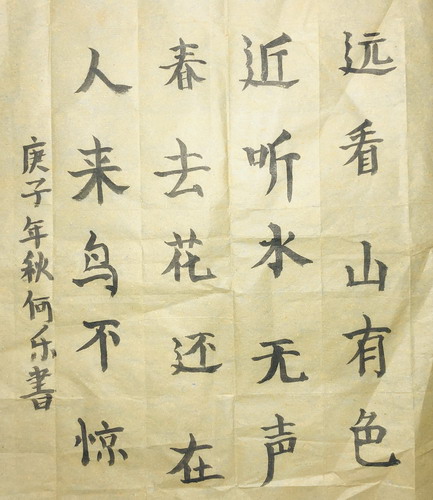 远看山有色
近听水无声
春去花还在
人来鸟不惊
庚子年秋何乐書